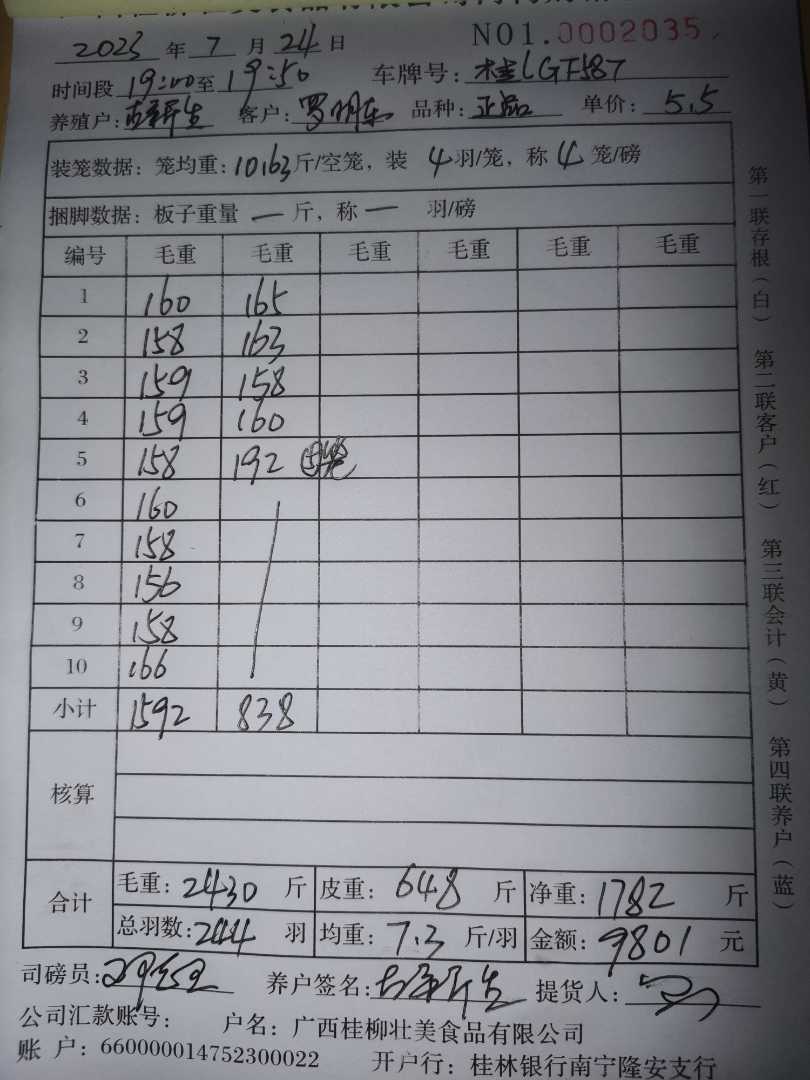 2023 年 7 月 24 日 NO1.0002035
时间段 19:00 至 19:50 车牌号: 桂LGF587
养殖户: 客户: 罗明东 品种: 正品 单价: 5.5
装笼数据: 笼均重: 10.163 斤/空笼, 装 4 羽/笼, 称 4 笼/磅
捆脚数据: 板子重量 — 斤, 称 — 羽/磅
编号 毛重 毛重 毛重 毛重 毛重 毛重
1 160 165
2 158 163
3 159 158
4 159 160
5 158 192
6 160
7 158
8 156
9 158
10 166
小计 1592 838
核算
合计 毛重: 2430 斤 皮重: 648 斤 净重: 1782 斤
总羽数: 244 羽 均重: 7.3 斤/羽 金额: 9801 元
司磅员: 养户签名: 提货人:
公司汇款账号: 户名: 广西桂柳壮美食品有限公司
账 户: 660000014752300022 开户行: 桂林银行南宁隆安支行
第一联存根(白) 第二联客户(红) 第三联会计(黄) 第四联养户(蓝)